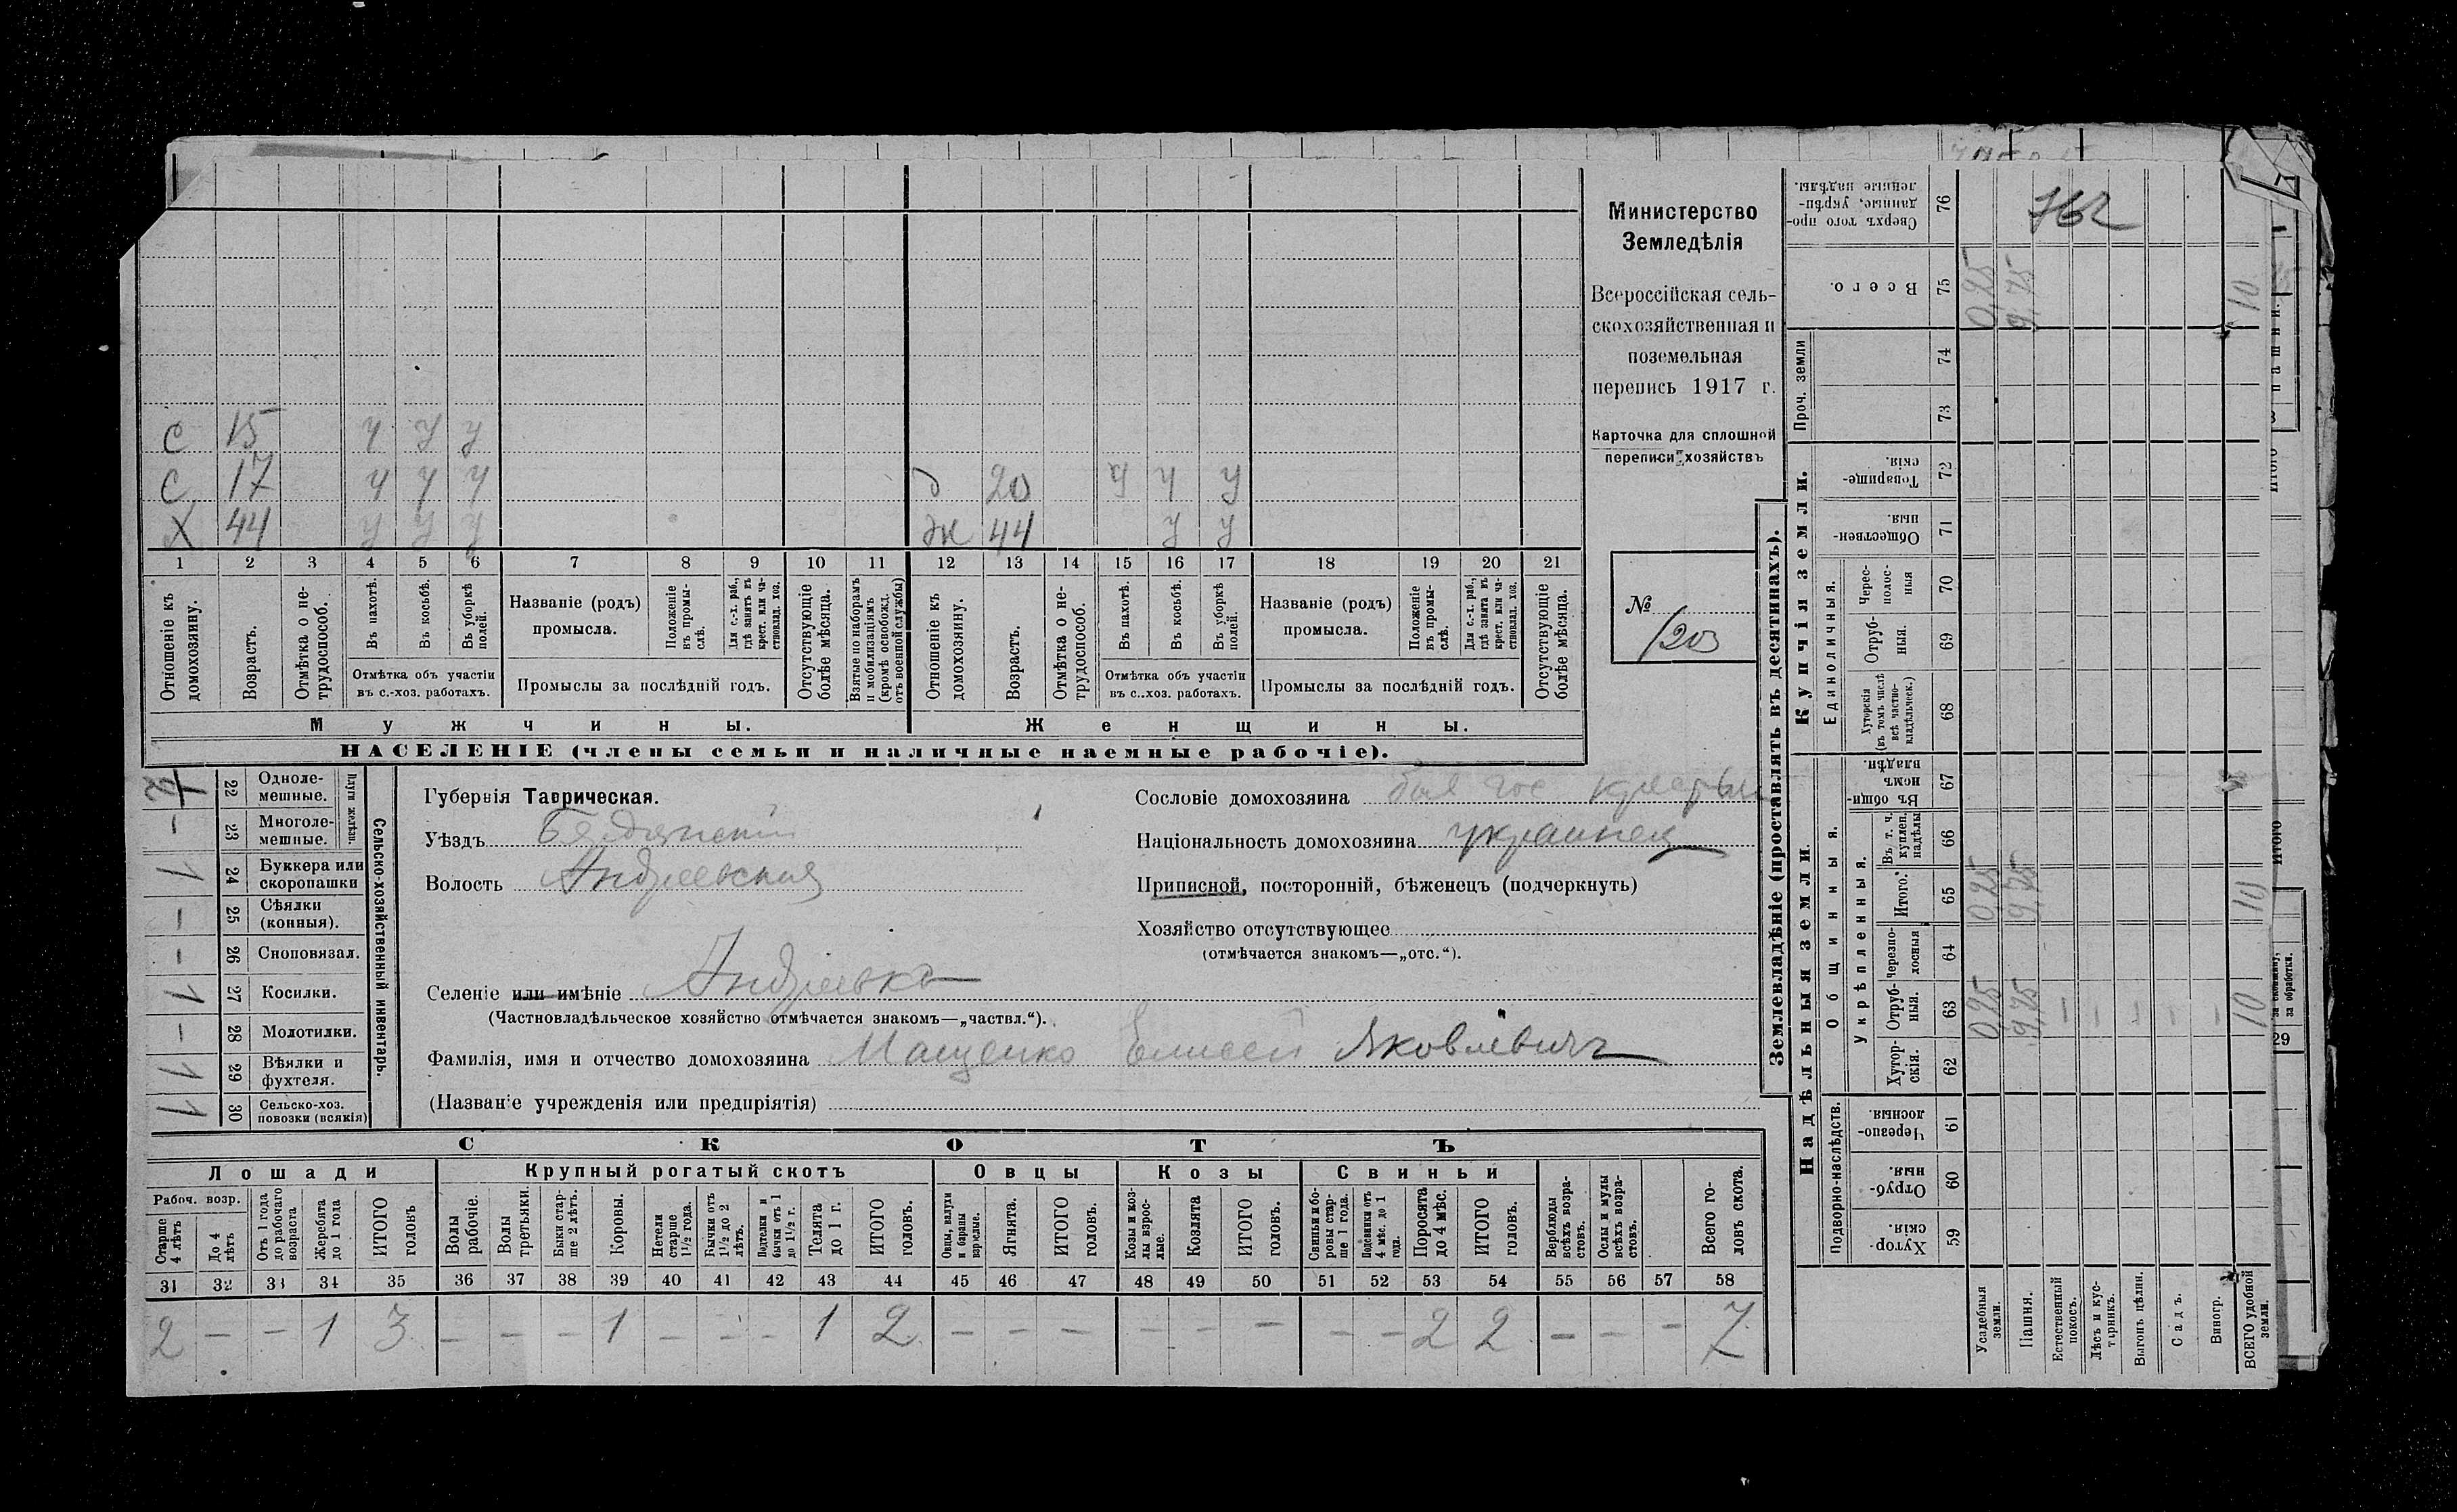 762
С 15 у у у
С 17 у у у д 20 у у у
Х 44 у у у ж 44 у у
1 2 3 4 5 6 7 8 9 10 11 12 13 14 15 16 17 18 19 20 21
Отношеніе къ домохозяину.
Возрастъ.
Отмѣтка о не-трудоспособ.
Въ пахотѣ.
Въ косьбѣ.
Въ уборкѣ полей.
Отмѣтка объ участіи
въ с.-хоз. работахъ.
Названіе (родъ)
промысла.
Положеніе въ промы-слѣ.
Для с.-х. раб., гдѣ занятъ въ крест. или ча-стновлад. хоз.
Промыслы за послѣдній годъ.
Отсутствующіе болѣе мѣсяца.
Взятые по наборамъ и мобилизаціямъ (кромѣ освобожд. отъ военной службы)
Отношеніе къ домохозяину.
Возрастъ.
Отмѣтка о не-трудоспособ.
Въ пахотѣ.
Въ косьбѣ.
Въ уборкѣ полей.
Отмѣтка объ участіи
въ с..хоз. работахъ.
Названіе (родъ)
промысла.
Положеніе въ промы-слѣ.
Для с.-х. раб., гдѣ занята въ крест. или ча-стновлад. хоз.
Промыслы за послѣдній годъ.
Отсутствующіе болѣе мѣсяца.
Мужчины.
Женщины.
НАСЕЛЕНІЕ (члены семьи и наличные наемные рабочіе).
Министерство
Земледѣлія
Всероссійская сель-
скохозяйственная и
поземельная
перепись 1917 г.
Карточка для сплошной
переписи хозяйствъ
№
120
Сельско-хозяйственный инвентарь.
Плуги желѣзн.
22 Одноле-мешные.
– 23 Многоле-мешные.
1 24 Буккера или скоропашки
– 25 Сѣялки (конныя).
– 26 Сноповязал.
1 27 Косилки.
– 28 Молотилки.
1 29 Вѣялки и фухтеля.
1 30 Сельско-хоз. повозки (всякія)
Губернія Таврическая.
Уѣздъ Бердянскій
Волость Андреевская
Селеніе или имѣніе Андреевка
(Частновладѣльческое хозяйство отмѣчается знакомъ—„частвл.“).
Фамилія, имя и отчество домохозяина Мащенко Елисей Яковлевичъ
(Названіе учрежденія или предпріятія)
Сословіе домохозяина быв гос крестьян
Національность домохозяина украинец
Приписной, посторонній, бѣженецъ (подчеркнуть)
Хозяйство отсутствующее
(отмѣчается знакомъ—„отс.“).
СКОТЪ
Лошади Крупный рогатый скотъ Овцы Козы Свиньи
Рабоч. возр.
Старше 4 лѣтъ
До 4 лѣтъ
Отъ 1 года до рабочаго возраста
Жеребята до 1 года
ИТОГО головъ
Волы рабочіе.
Волы третьяки.
Быки стар-ше 2 лѣтъ.
Коровы.
Нетели старше 1½ года.
Бычки отъ 1½ до 2 лѣтъ.
Подтелки и бычки отъ 1 до 1½ г.
Телята до 1 г.
ИТОГО головъ.
Овцы, валухи и бараны взрослые.
Ягнята.
ИТОГО головъ.
Козы и коз-лы взрос-лые.
Козлята
ИТОГО головъ.
Свиньи и бо-ровы стар-ше 1 года.
Подсвинки отъ 4 мѣс. до 1 года.
Поросята до 4 мѣс.
ИТОГО головъ.
Верблюды всѣхъ возра-стовъ.
Ослы и мулы всѣхъ возра-стовъ.
Всего го-ловъ скота.
31 32 33 34 35 36 37 38 39 40 41 42 43 44 45 46 47 48 49 50 51 52 53 54 55 56 57 58
2 – – 1 3 – – – 1 – – – 1 2 – – – – – – – – 2 2 – – – 7
Землевладѣніе (проставлять въ десятинахъ).
Надѣльныя земли.
Купчія земли.
Проч. земли
Подворно-наслѣдств.
Общинныя.
Укрѣпленныя.
Единоличныя.
Хутор-скія. 59
Отруб-ныя. 60
Черезпо-лосныя. 61
Хутор-скія. 62
Отруб-ныя. 63
Черезпо-лосныя 64
Итого. 65
Въ т. ч. куплен. надѣлы 66
Въ общин-номъ владѣн. 67
Хуторскія (въ томъ числѣ всѣ частно-владѣльческ.) 68
Отруб-ныя. 69
Черес-полос-ныя 70
Обществен-ныя. 71
Товарище-скія. 72
73
74
Всего. 75
Сверхъ того про-данные, укрѣп-ленные надѣлы. 76
Усадебныя земли. 0,25 0,25 0,25
Пашня. 9,75 9,75 9,75
Естественный покосъ.
Лѣсъ и кус-тарникъ.
Выгонъ цѣлин.
Садъ.
Виногр.
ВСЕГО удобной земли. 10 10 10
итого
29